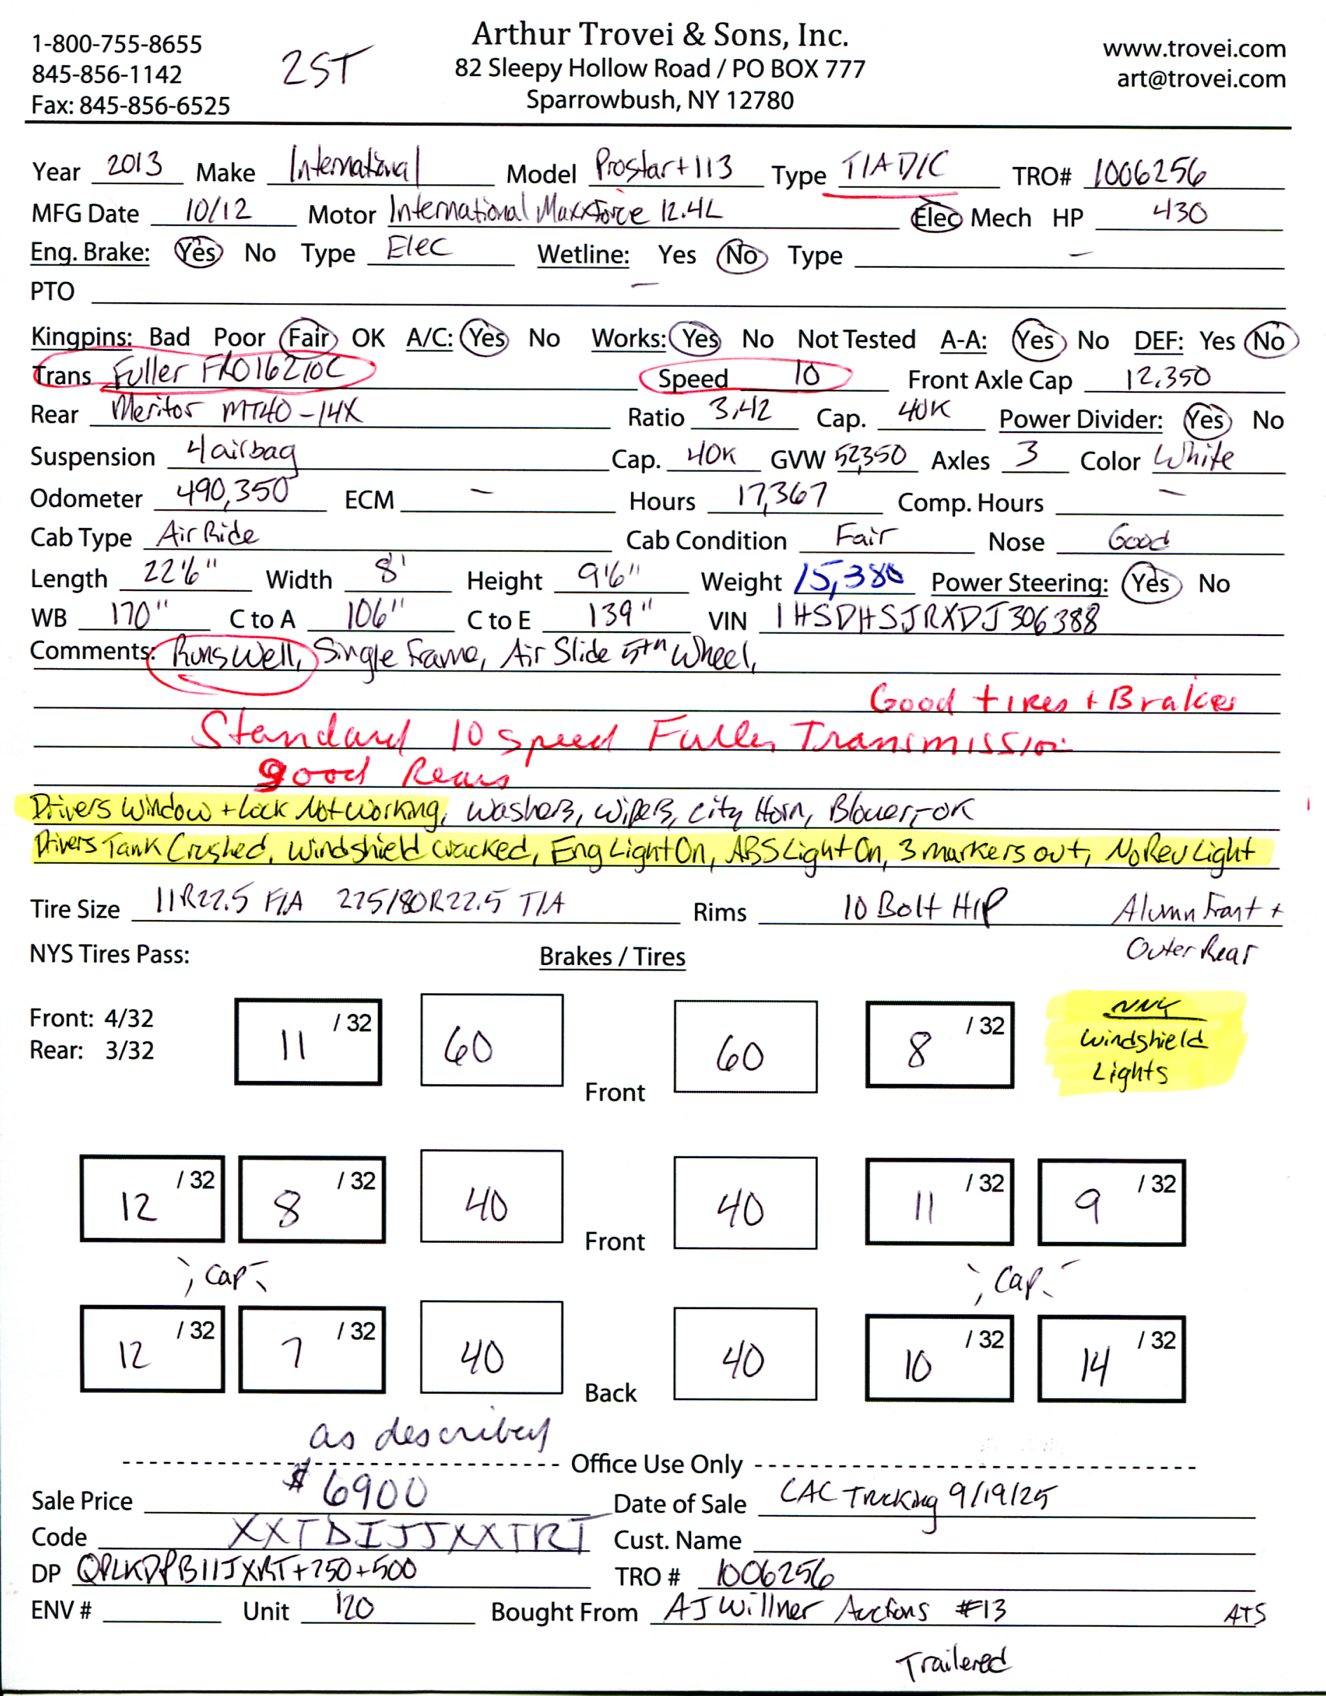 1-800-755-8655
845-856-1142
Fax: 845-856-6525
2ST
Arthur Trovei & Sons, Inc.
82 Sleepy Hollow Road / PO BOX 777
Sparrowbush, NY 12780
www.trovei.com
art@trovei.com
Year 2013 Make International Model Prostar+113 Type T/A D/C TRO# 1006256
MFG Date 10/12 Motor International Maxxforce 12.4L Elec Mech HP 430
Eng. Brake: Yes No Type Elec Wetline: Yes No Type -
PTO -
Kingpins: Bad Poor Fair OK A/C: Yes No Works: Yes No Not Tested A-A: Yes No DEF: Yes No
Trans Fuller FRO16210C Speed 10 Front Axle Cap 12,350
Rear Meritor MT40-14X Ratio 3.42 Cap. 40K Power Divider: Yes No
Suspension 4 airbag Cap. 40K GVW 52,350 Axles 3 Color White
Odometer 490,350 ECM - Hours 17,367 Comp. Hours -
Cab Type Air Ride Cab Condition Fair Nose Good
Length 22'6" Width 8' Height 9'6" Weight 15,380 Power Steering: Yes No
WB 170" C to A 106" C to E 139" VIN 1HSDHSJRXDJ306388
Comments: Runs Well, Single Frame, Air Slide 5th Wheel,
Good tires + Brakes
Standard 10 speed Fuller Transmission
good Rears
Drivers Window + Lock Not Working, Washers, Wipers, City Horn, Blower-OK
Drivers Tank Crushed, Windshield cracked, Eng Light On, ABS Light On, 3 markers out, No Rev Light
Tire Size 11R22.5 F/A 275/80R22.5 T/A Rims 10 Bolt H/P Alumn Front +
Outer Rear
NYS Tires Pass: Brakes / Tires
Front: 4/32
Rear: 3/32
11 /32 60 Front 60 8 /32
NNY
Windshield
Lights
12 /32 8 /32 40 Front 40 11 /32 9 /32
Cap Cap
12 /32 7 /32 40 Back 40 10 /32 14 /32
as described
Office Use Only
Sale Price $6900 Date of Sale CAC Trucking 9/19/25
Code XXTDIJJXXTRT Cust. Name
DP QPLKDPB11JXRT+250+500 TRO # 1006256
ENV # Unit 120 Bought From AJ Willner Auctions #13 ATS
Trailered